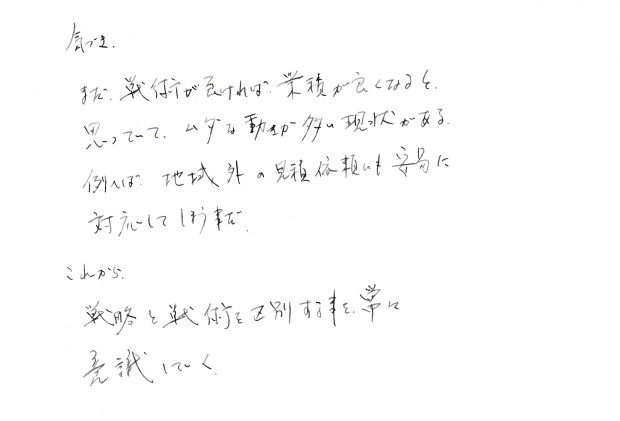 気づき.
まだ. 戦術が良ければ. 業積が良くなると.
思っていて. ムダな動きが多い現状がある.
例えば. 地域外の見積依頼にも安易に
対応してしまう事だ.
これから.
戦略と戦術を区別する事を. 常に
意識していく.